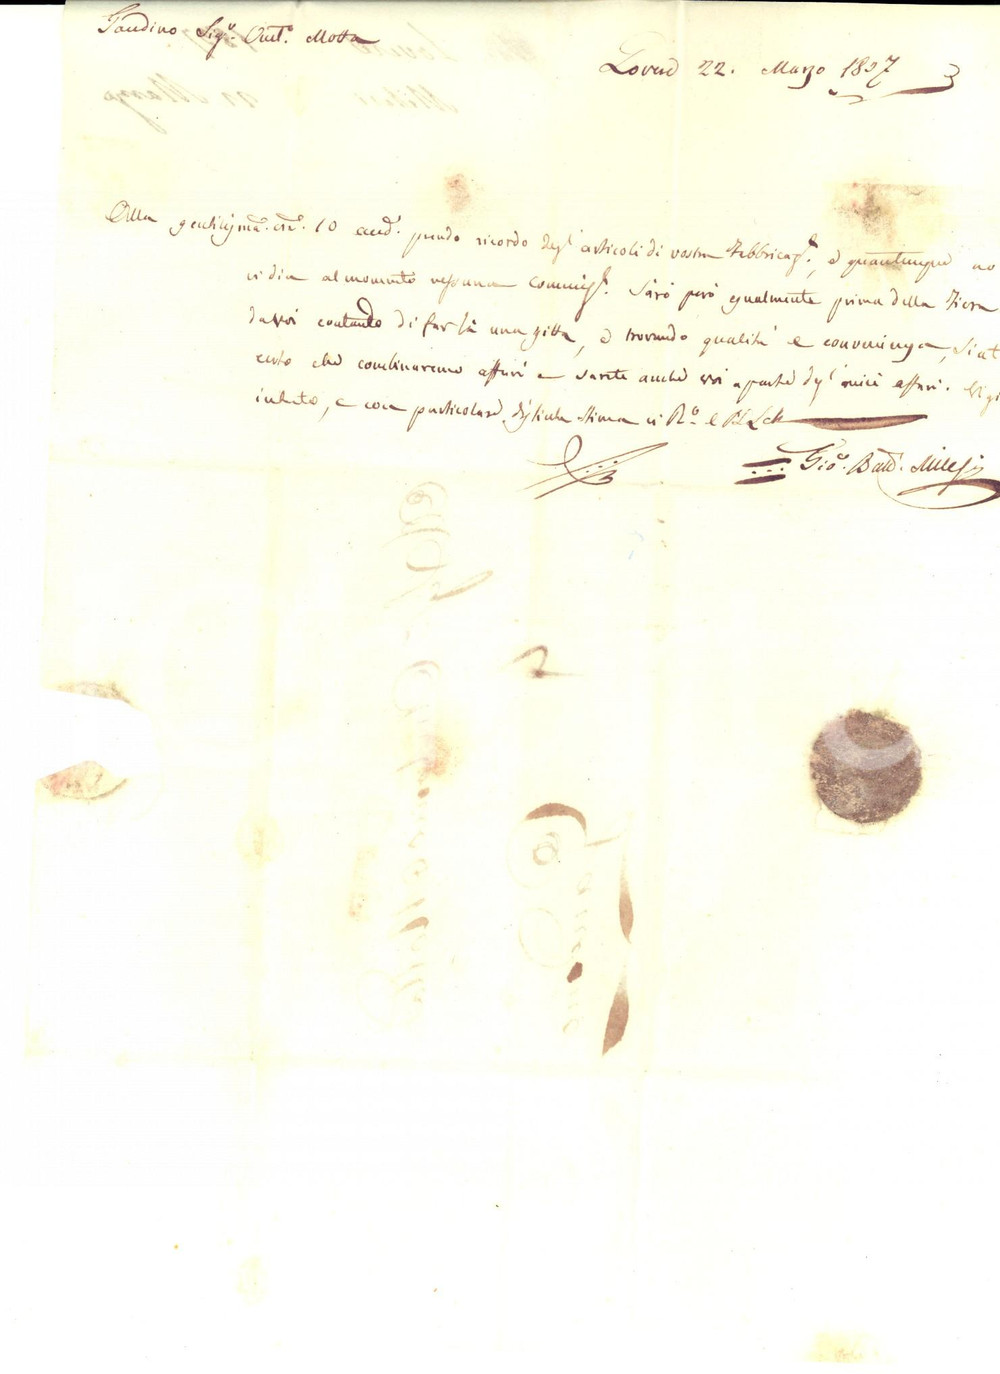 Gandino Sig.r Ant.o Motta
Lovere 22. Marzo 1837
Alla gentilissma. 10 and. prendo ricordo degl' articoli di vostra Fabbricaz.e, e quantunque no
vi dia al momento nessuna Commiss.e. Sarò però egualmente prima della Fiera
da voi contando di far là una gitta, e trovando qualità e convenienza, siat
certo che combineremo affari e sarete anche voi a parte degl' miei affari. Vi
saluto, e con particolare distinta stima vi
Gio. Batt. Milesi